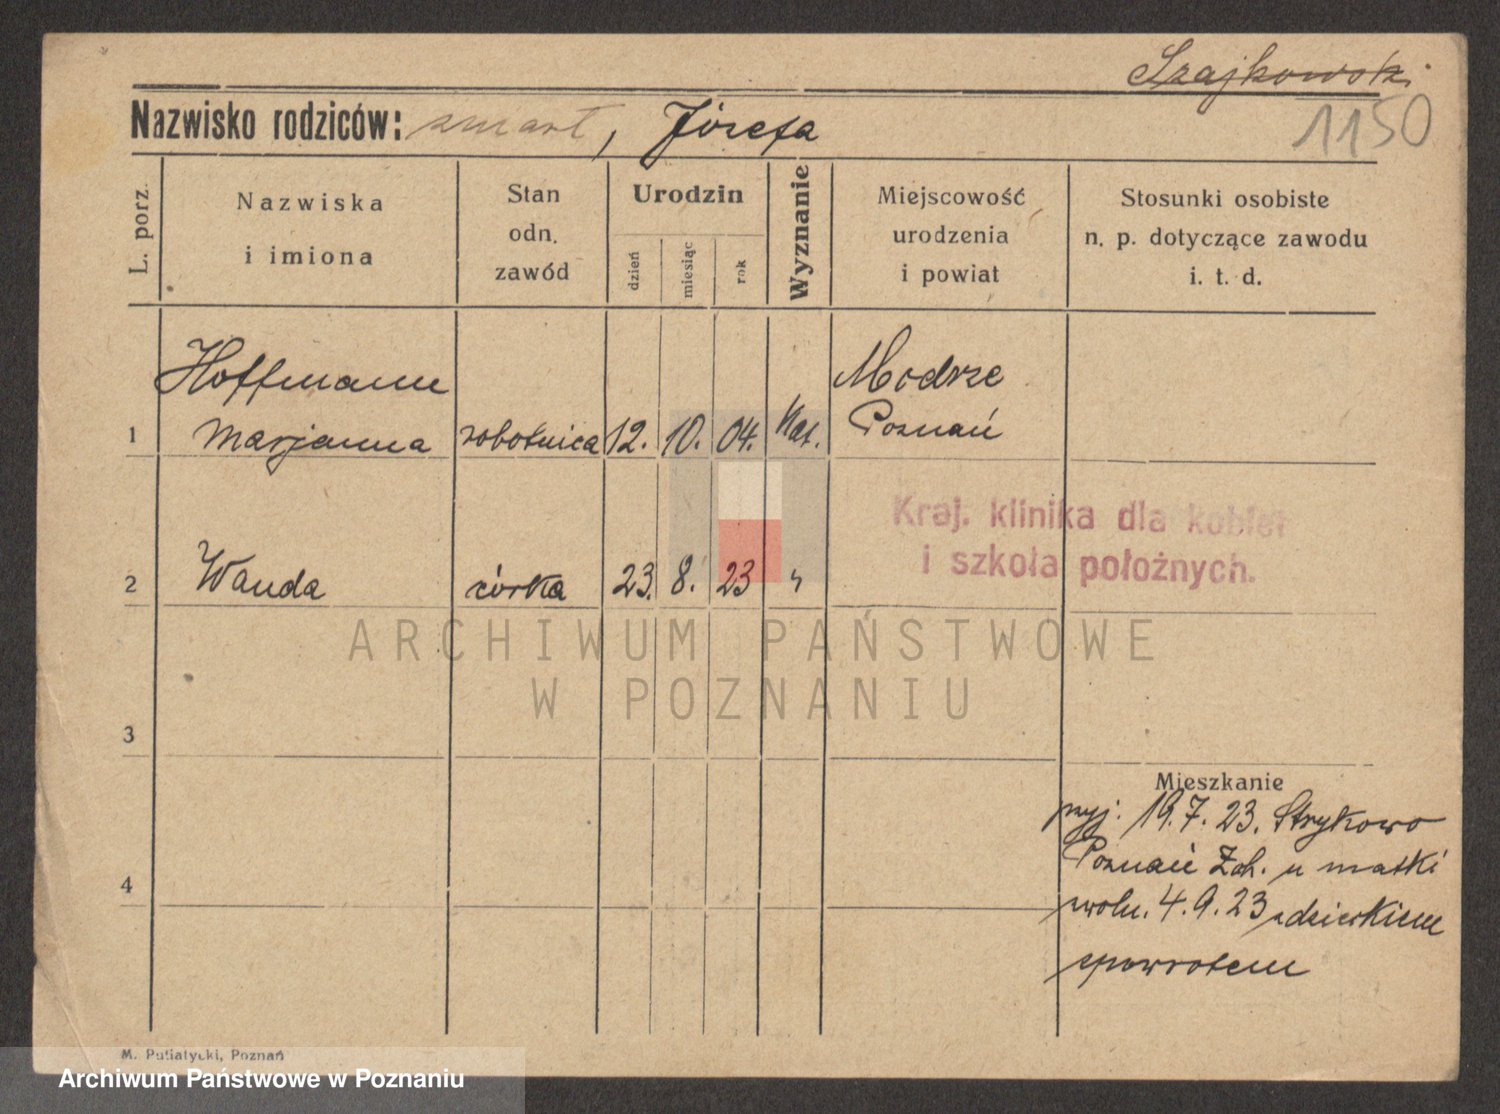 Szajkowski
Nazwisko rodziców: zmarł, Józefa
1150
L. porz.
Nazwiska
i imiona
Stan
odn.
zawód
Urodzin
dzień
miesiąc
rok
Wyznanie
Miejscowość
urodzenia
i powiat
Stosunki osobiste
n. p. dotyczące zawodu
i. t. d.
Hoffmann Modrze
1 Marjanna robotnica 12. 10. 04. kat. Poznań
Kraj. klinika dla kobiet
i szkoła położnych.
2 Wanda córka 23. 8. 23 "
ARCHIWUM PAŃSTWOWE
W POZNANIU
3
Mieszkanie
przyj. 19.7.23. Strykowo
Poznań Zch. u matki
zwoln. 4.9.23 z dzieckiem
spowrotem
4
M. Putiatycki, Poznań
Archiwum Państwowe w Poznaniu